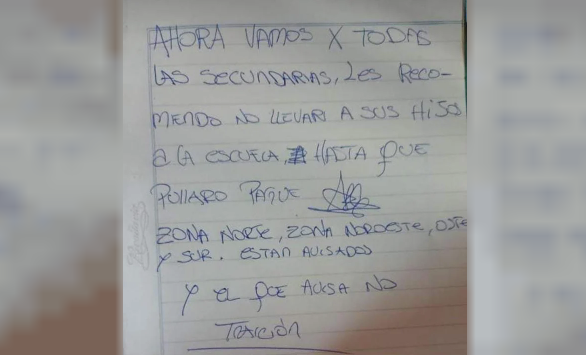 AHORA VAMOS X TODAS
LAS SECUNDARIAS, LES RECO-
MIENDO NO LLEVAR A SUS HIJOS
a LA ESCUELA, HASTA QUE
PULLARO PAGUE
ZONA NORTE, ZONA NOROESTE, OSTE
Y SUR. ESTAN AVISADOS
Y EL QUE AVISA NO
TRAICIÓN